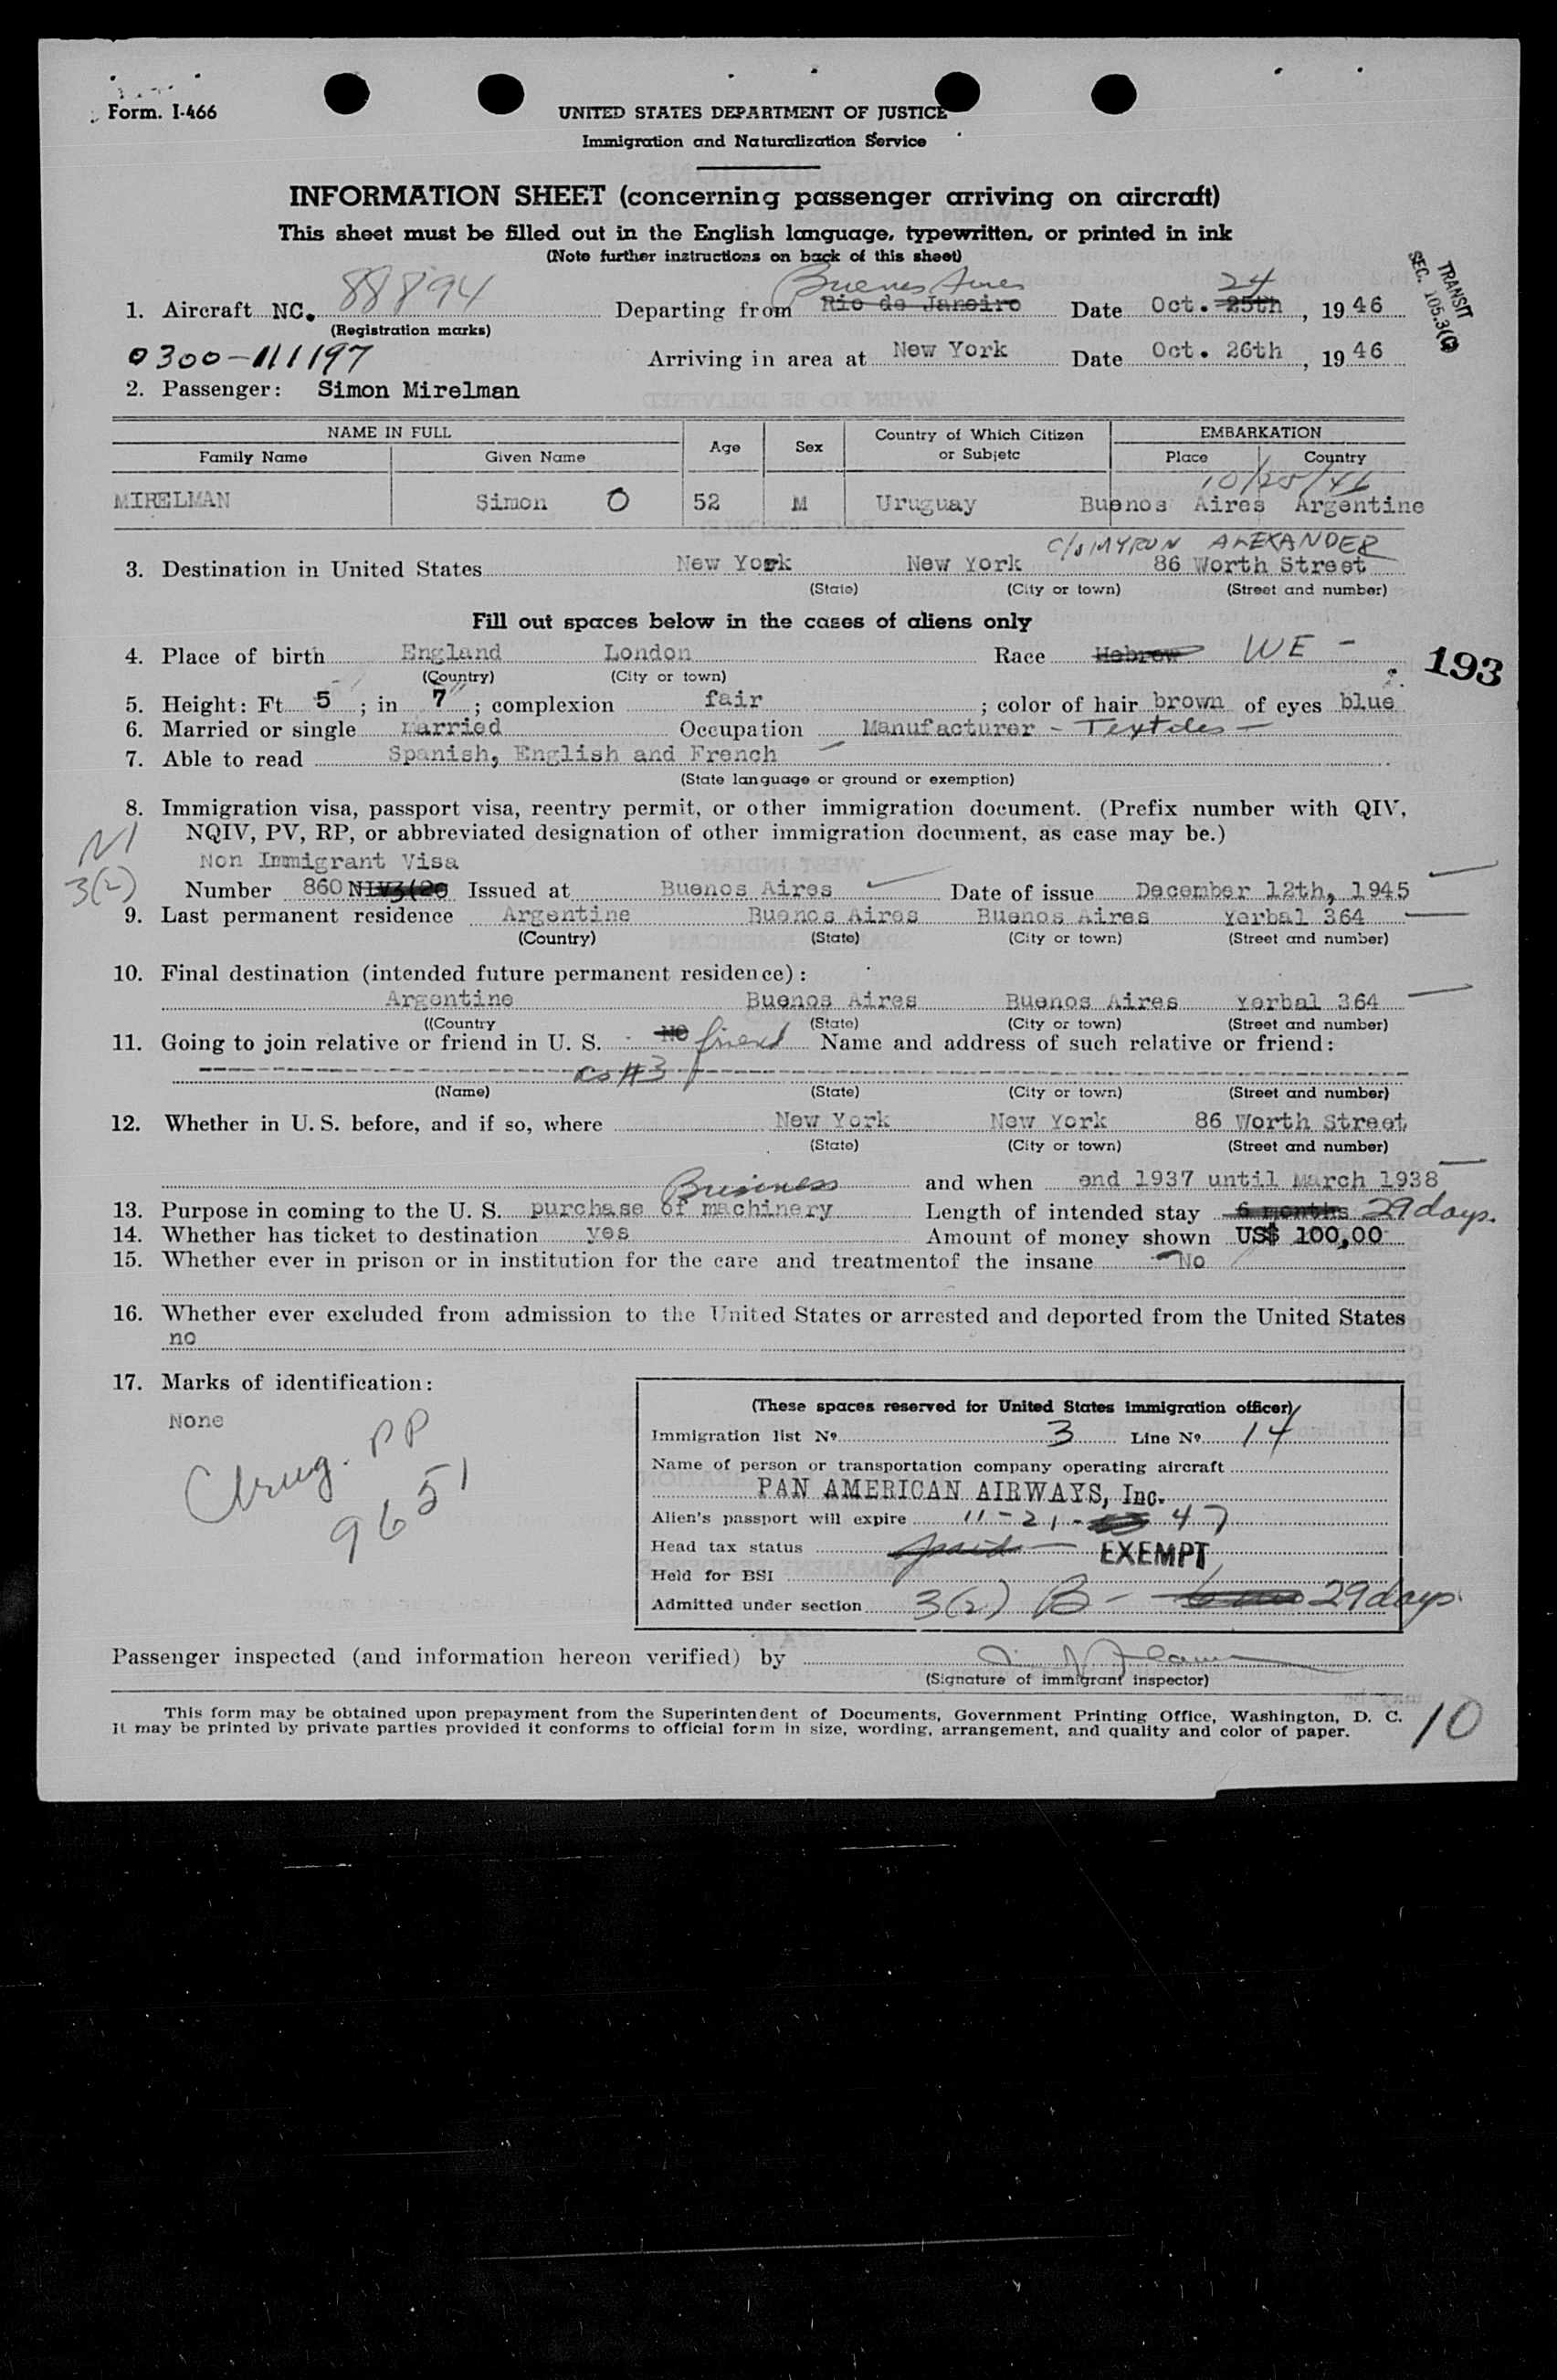 Form. I-466
UNITED STATES DEPARTMENT OF JUSTICE
Immigration and Naturalization Service
INFORMATION SHEET (concerning passenger arriving on aircraft)
This sheet must be filled out in the English language, typewritten, or printed in ink
(Note further instructions on back of this sheet)
TRANSIT
SEC. 105.3(
Buenos Aires 24
1. Aircraft NC. 88894 Departing from Rio de Janeiro Date Oct. 25th, 1946
(Registration marks)
0300-111197 Arriving in area at New York Date Oct. 26th, 1946
2. Passenger: Simon Mirelman
NAME IN FULL Age Sex Country of Which Citizen or Subjetc EMBARKATION
Family Name Given Name Place Country
10/25/46
MIRELMAN Simon O 52 M Uruguay Buenos Aires Argentine
C/o MYRON ALEXANDER
3. Destination in United States New York New York 86 Worth Street
(State) (City or town) (Street and number)
Fill out spaces below in the cases of aliens only
4. Place of birth England London Race Hebrew WE -
(Country) (City or town)
193
5. Height: Ft 5 ; in 7 ; complexion fair ; color of hair brown of eyes blue
6. Married or single married Occupation Manufacturer - Textiles -
7. Able to read Spanish, English and French
(State language or ground or exemption)
8. Immigration visa, passport visa, reentry permit, or other immigration document. (Prefix number with QIV,
NQIV, PV, RP, or abbreviated designation of other immigration document, as case may be.)
NI
3(2)
Non Immigrant Visa
Number 860 Issued at Buenos Aires Date of issue December 12th, 1945
9. Last permanent residence Argentine Buenos Aires Buenos Aires Yerbal 364
(Country) (State) (City or town) (Street and number)
10. Final destination (intended future permanent residence):
Argentine Buenos Aires Buenos Aires Yerbal 364
((Country (State) (City or town) (Street and number)
11. Going to join relative or friend in U. S. NO friend Name and address of such relative or friend:
#3
(Name) (State) (City or town) (Street and number)
12. Whether in U. S. before, and if so, where New York New York 86 Worth Street
(State) (City or town) (Street and number)
and when end 1937 until March 1938
Business
13. Purpose in coming to the U. S. purchase of machinery Length of intended stay 6 months 29 days.
14. Whether has ticket to destination yes Amount of money shown US$ 100,00
15. Whether ever in prison or in institution for the care and treatmentof the insane No
16. Whether ever excluded from admission to the United States or arrested and deported from the United States
no
17. Marks of identification:
None
PP
9651
(These spaces reserved for United States immigration officer)
Immigration list Nº 3 Line Nº 14
Name of person or transportation company operating aircraft
PAN AMERICAN AIRWAYS, Inc.
Alien's passport will expire 11-21- 47
Head tax status paid EXEMPT
Held for BSI
Admitted under section 3(2) B - 29 days
Passenger inspected (and information hereon verified) by
(Signature of immigrant inspector)
This form may be obtained upon prepayment from the Superintendent of Documents, Government Printing Office, Washington, D. C.
It may be printed by private parties provided it conforms to official form in size, wording, arrangement, and quality and color of paper.
10